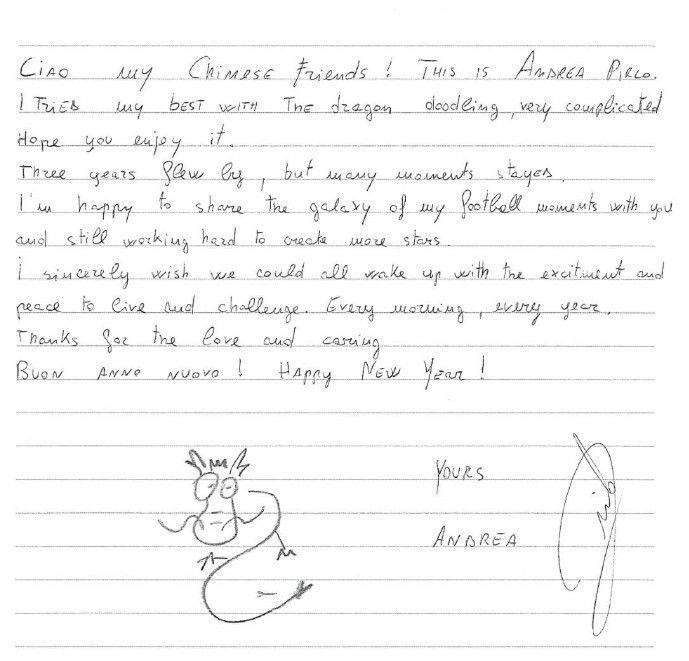 Ciao my Chinese friends! This is Andrea Pirlo.
I tried my best with the dragon doodling, very complicated
Hope you enjoy it.
Three years flew by, but many moments stayed.
I'm happy to share the galaxy of my football moments with you
and still working hard to create more stars.
I sincerely wish we could all wake up with the excitment and
peace to live and challenge. Every morning, every year.
Thanks for the love and caring
Buon anno nuovo! Happy New Year!
Yours
Andrea